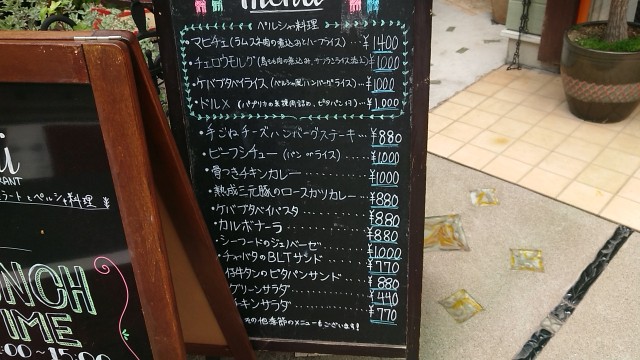 menu
ペルシャ料理
・マヒチェ(ラムスネ肉の煮込みとハーブライス)... ¥1400
・チェロウモルグ(鳥もも肉の煮込み、サフランライス添え) ¥1000
・ケバブタベイライス(ペルシャ風ハンバーグライス)... ¥1000
・ドルメ(パプリカの 肉詰め、ピタパン付)... ¥1,000
・手ごねチーズハンバーグステーキ... ¥880
・ビーフシチュー(パン orライス)... ¥1,000
・骨つきチキンカレー... ¥1000
・熟成三元豚のロースカツカレー... ¥880
・ケバブタベイパスタ... ¥880
・カルボナーラ... ¥880
・シーフードのジェノベーゼ... ¥1000
・チャバタのBLTサンド... ¥770
仔牛タンのピタパンサンド... ¥880
グリーンサラダ... ¥440
チキンサラダ... ¥770
の他季節のメニューもございます!
RANT
ラートとペルシャ料理
NCH
IME
15:00